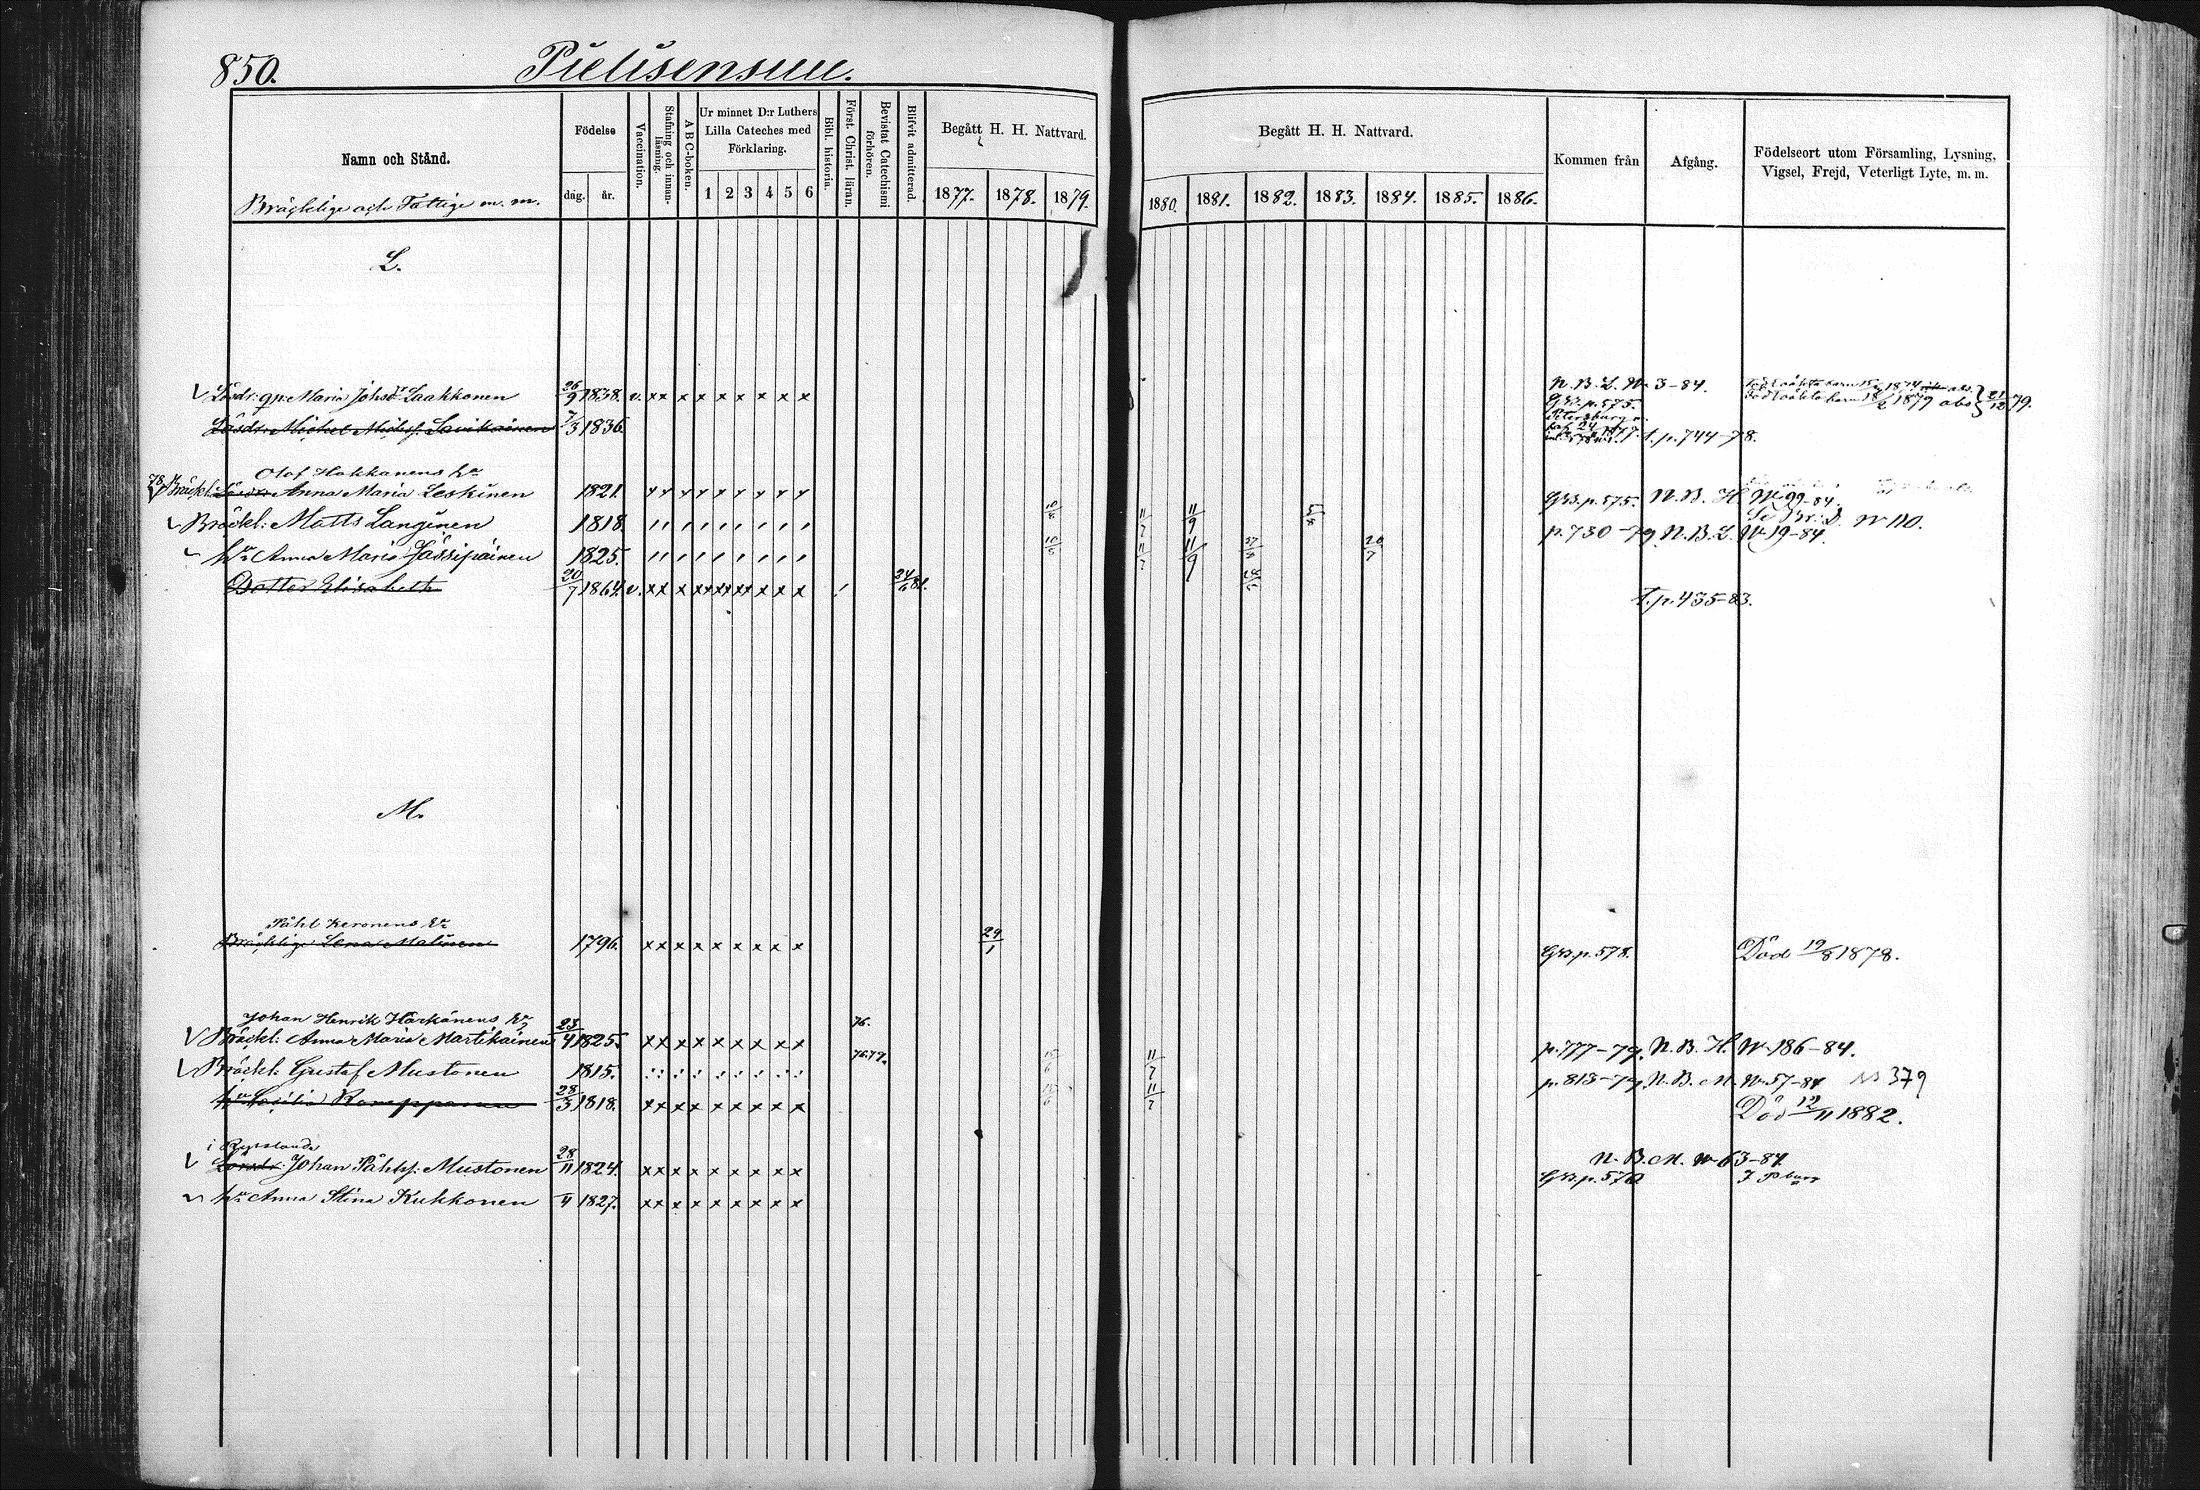 850.
Pielisensuu.
Namn och Stånd.
Bräcklige och Fattige m. m.
Födelse
dag. år.
Vaccination.
Stafning och innanläsning.
A B C-boken.
Ur minnet D:r Luthers
Lilla Cateches med
Förklaring.
1 2 3 4 5 6
Bibl. historia.
Först. Christ. läran.
Bevistat Catechismi förhören.
Blifvit admitterad.
Begått H. H. Nattvard.
1877. 1878. 1879.
Begått H. H. Nattvard.
1880. 1881. 1882. 1883. 1884. 1885. 1886.
Kommen från
Afgång.
Födelseort utom Församling, Lysning,
Vigsel, Frejd, Veterligt Lyte, m. m.
L.
Lösdr: qp: Maria Johsdr Laakkonen 26/9 1838. v. xx x x x x x x x N. B. L. No 3-84.
Grs. p. 575. 1879 abs 21/12 79.
Lösdr: Michel Michsf. Savikainen 7/3 1836. t. p. 744-78.
Olof Hakkanens ha
Bräckl: Anna Maria Leskinen 1821. Grs. p. 575. N. B. H. No 99-84.
Bräckl: Matts Langinen 1818. 11/7 11/9 p. 730-79. N. B. L. No 19-84. No 110.
hu Anna Maria Jässipäinen 1825. 11/7 11/9 20/7
Dotter Elisabeth 20/7 1864. v. xx x xx xx xx x x x 24/6 81. t. p. 435-83.
M.
Påhl Keronens Ea
Bräcklige Lena Malinen 1796. xx x x x x x x x 29/1 Grs. p. 578. Död 19/8 1878.
Johan Henrik Härkänens Ea
Bräckl: Anna Maria Martikainen 23/4 1825. xx x x x x x x x 76. p. 777-79. N. B. H. No 186-84.
Bräckl: Gustaf Mustonen 1815. 76.77. 11/7 p. 813-79. N. B. M. No 57-84 379
hu Cecilia Romppanen 28/3 1818. xx x x x x x x x 11/7 Död 12/11 1882.
i Ryssland
Lösdr: Johan Påhlsf. Mustonen 28/11 1824. xx x x x x x x x N. B. M. No 63-84.
Grs. p. 576
hu Anna Stina Kukkonen 1827. xx x x x x x x x